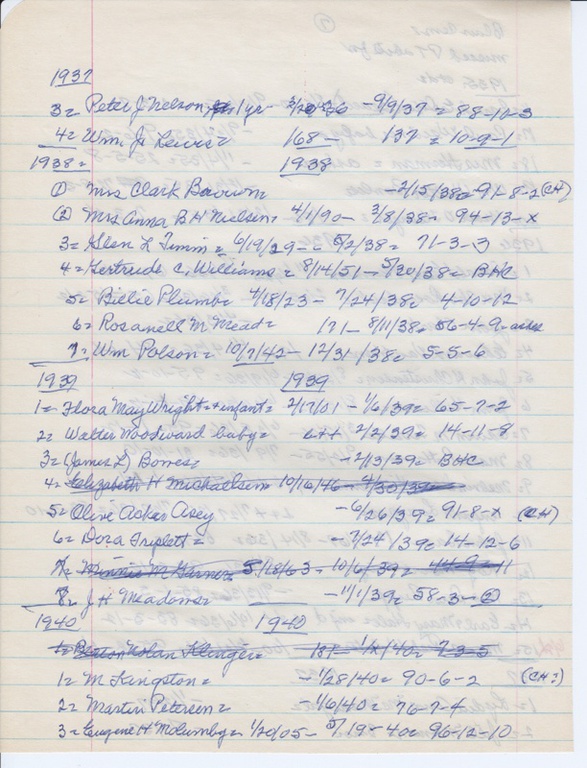 ⑦
1937
3= Peter J Nelson 1yr - 9/9/37 = 88-10-3
4= Wm. J. Lewis= 168- 137 = 10-9-1
1938= 1938
① Mrs Clark -2/15/38= 91-8-2 (CH)
② Mrs Anna B H Nielsen= 4/1/90- 3/8/38= 94-13-x
3= Glen L Timm = 6/19/29 - 5/2/38= 71-3-3
4= Gertrude C, Williams = 8/14/51 - 5/20/38= BHC
5= Billie Plumb= 4/18/23 - 7/24/38= 4-10-12
6= Rosanell M Mead= 171- 8/11/38= 56-4-9=
7= Wm Polson= 10/7/42- 12/31/38= 5-5-6
1939 1939
1= Flora May Wright + infant= 2/17/01 - 1/6/39= 65-7-2
2= Walter Woodward baby= 2/2/39= 14-11-8
3= (James L) Bones= -2/13/39= BHC
4= Elizabeth H Michaelsen 10/16/46 - 4/30/39
5= Olive Acker Asey -6/26/39= 91-8-x (CH)
6= Dora Triplett= -7/24/39= 14-12-6
7= Minnie M 5/18/63 - 10/6/39=
8= J. H. Meadows= -11/1/39= 58-3-②
1940= 1940
1= Nolan Klinger= 181- 1/x/40= 7-3-5
1= M Kingston= -1/28/40= 90-6-2 (CH?)
2= Martin Petersen= -1/6/40= 76-7-4
3= Eugene H 1/20/05- 5/19-40= 96-12-10